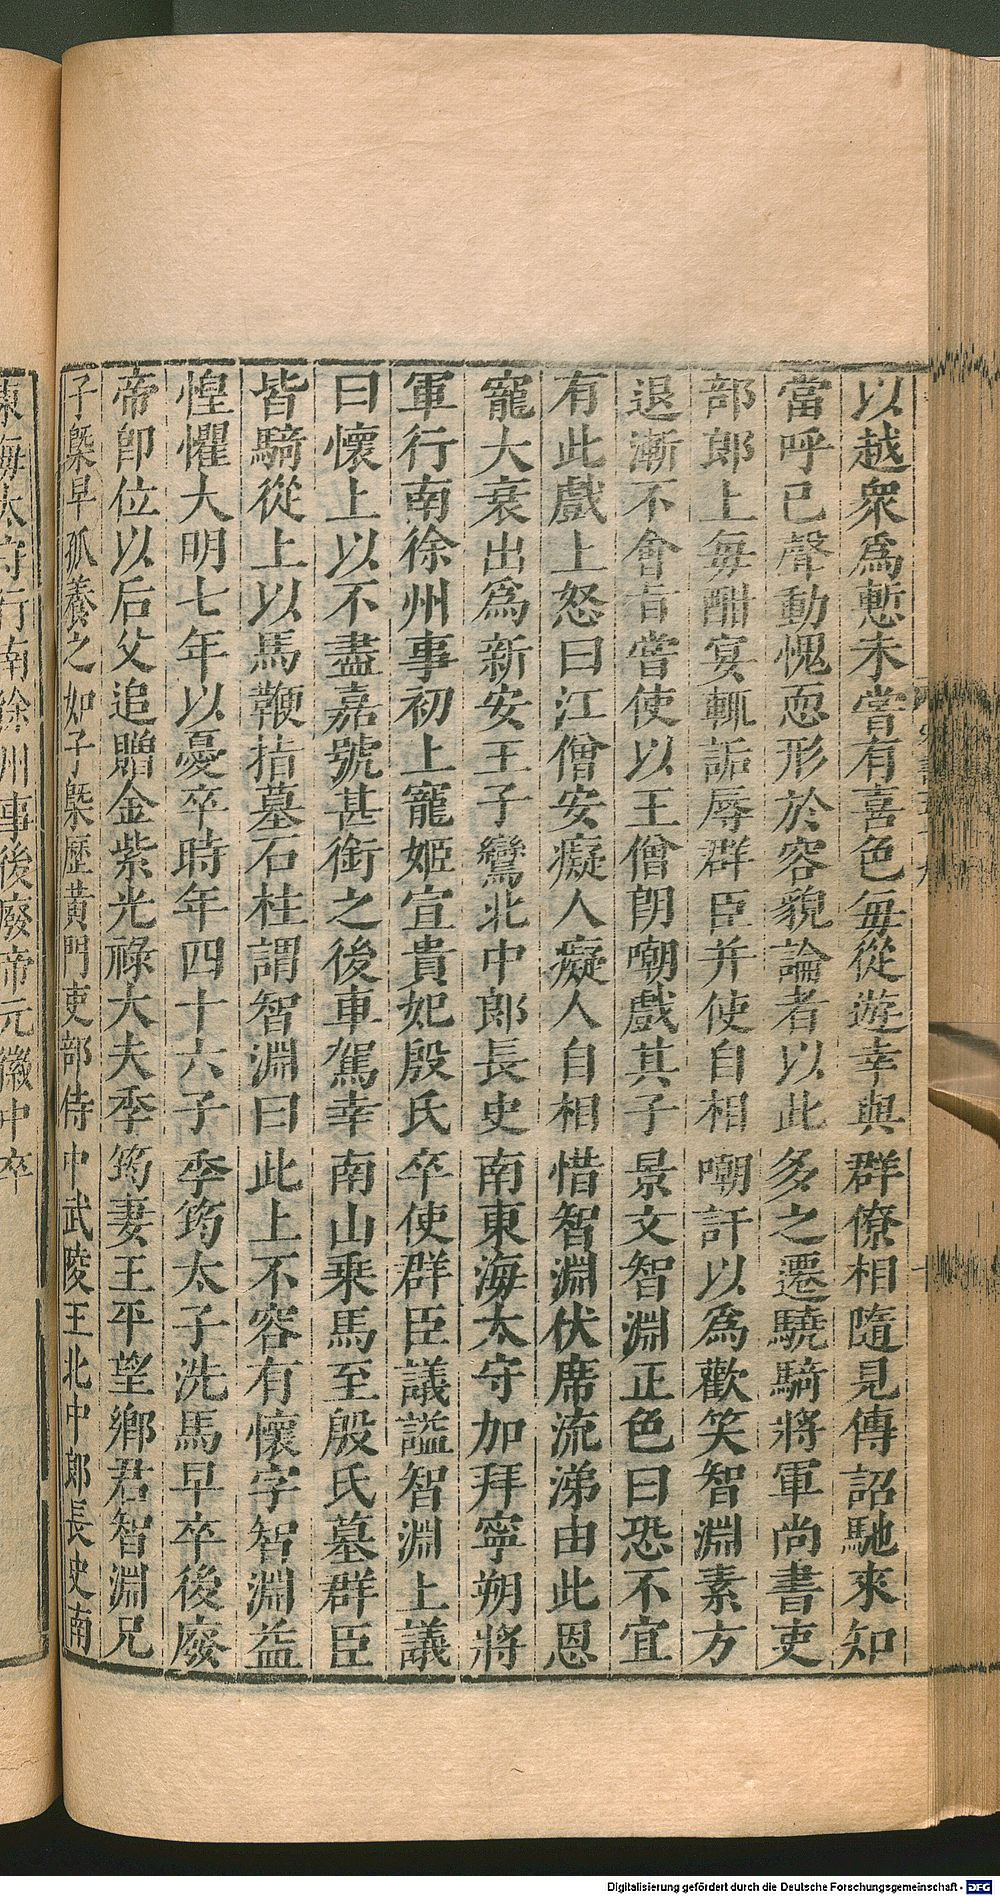 以越衆爲慙未嘗有喜色每從遊幸與群僚相隨見傳詔馳來知
當呼己聲動愧恧形於容貌論者以此多之遷驍騎將軍尚書吏
部郎上每酣宴輒詬辱群臣并使自相嘲訐以爲歡笑智淵素方
退漸不會旨嘗使以王僧朗嘲戲其子景文智淵正色曰恐不宜
有此戲上怒曰江僧安癡人癡人自相惜智淵伏席流涕由此恩
寵大衰出爲新安王子鸞北中郎長史南東海太守加拜寧朔將
軍行南徐州事初上寵姬宣貴妃殷氏卒使群臣議謚智淵上議
曰懷上以不盡嘉號甚銜之後車駕幸南山乗馬至殷氏墓群臣
皆騎從上以馬鞭指墓石柱謂智淵曰此上不容有懷字智淵益
惶懼大明七年以憂卒時年四十六子季筠太子洗馬早卒後廢
帝卽位以后父追贈金紫光祿大夫季筠妻王平望鄉君智淵兄
子槩早孤養之如子槩歷黃門吏部侍中武陵王北中郎長史南
東海太守行南徐州事後廢帝元徽中卒
Digitalisierung gefördert durch die Deutsche Forschungsgemeinschaft - DFG